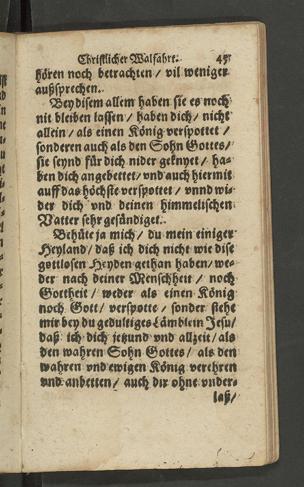 Christlicher Walfahrt. 45
hören noch betrachten / vil weniger
außsprechen.
Bey disem allem haben sie es noch
nit bleiben lassen / haben dich / nicht
allein / als einen König verspottet /
sonderen auch als den Sohn Gottes /
sie seynd für dich nider geknyet / ha-
ben dich angebettet / vnd auch hiermit
auff das höchste verspottet / vnnd wi-
der dich vnd deinen himmelischen
Vatter sehr gesündiget.
Behüte ja mich / du mein einiger
Heyland / daß ich dich nicht wie dise
gottlosen Heyden gethan haben / we-
der nach deiner Menschheit / noch
Gottheit / weder als einen König
noch Gott / verspotte / sonder stehe
mir bey du gedultiges Lämblein Jesu /
daß ich dich jetzund vnd allzeit / als
den wahren Sohn Gottes / als den
wahren vnd ewigen König verehren
vnd anbetten / auch dir ohne vnder-
laß /